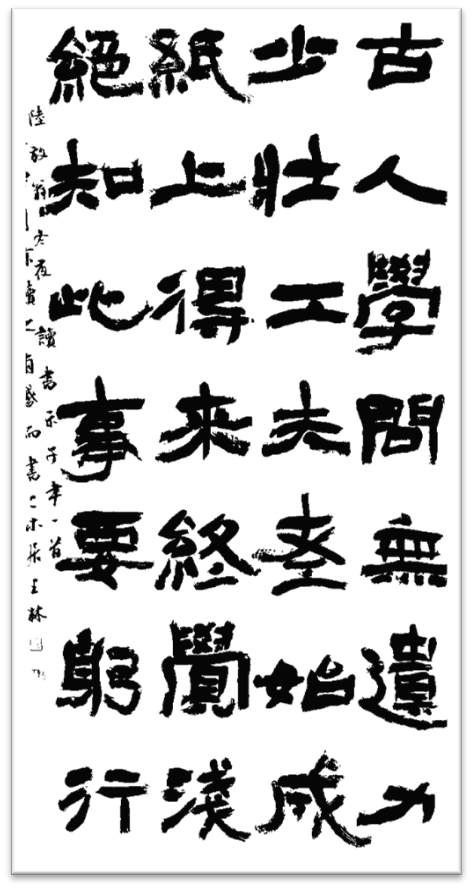 古人學問無遺力
少壯工夫老始成
紙上得來終覺淺
絕知此事要躬行
陸放翁冬夜讀書示子聿一首
讀之有感而書二木居王林